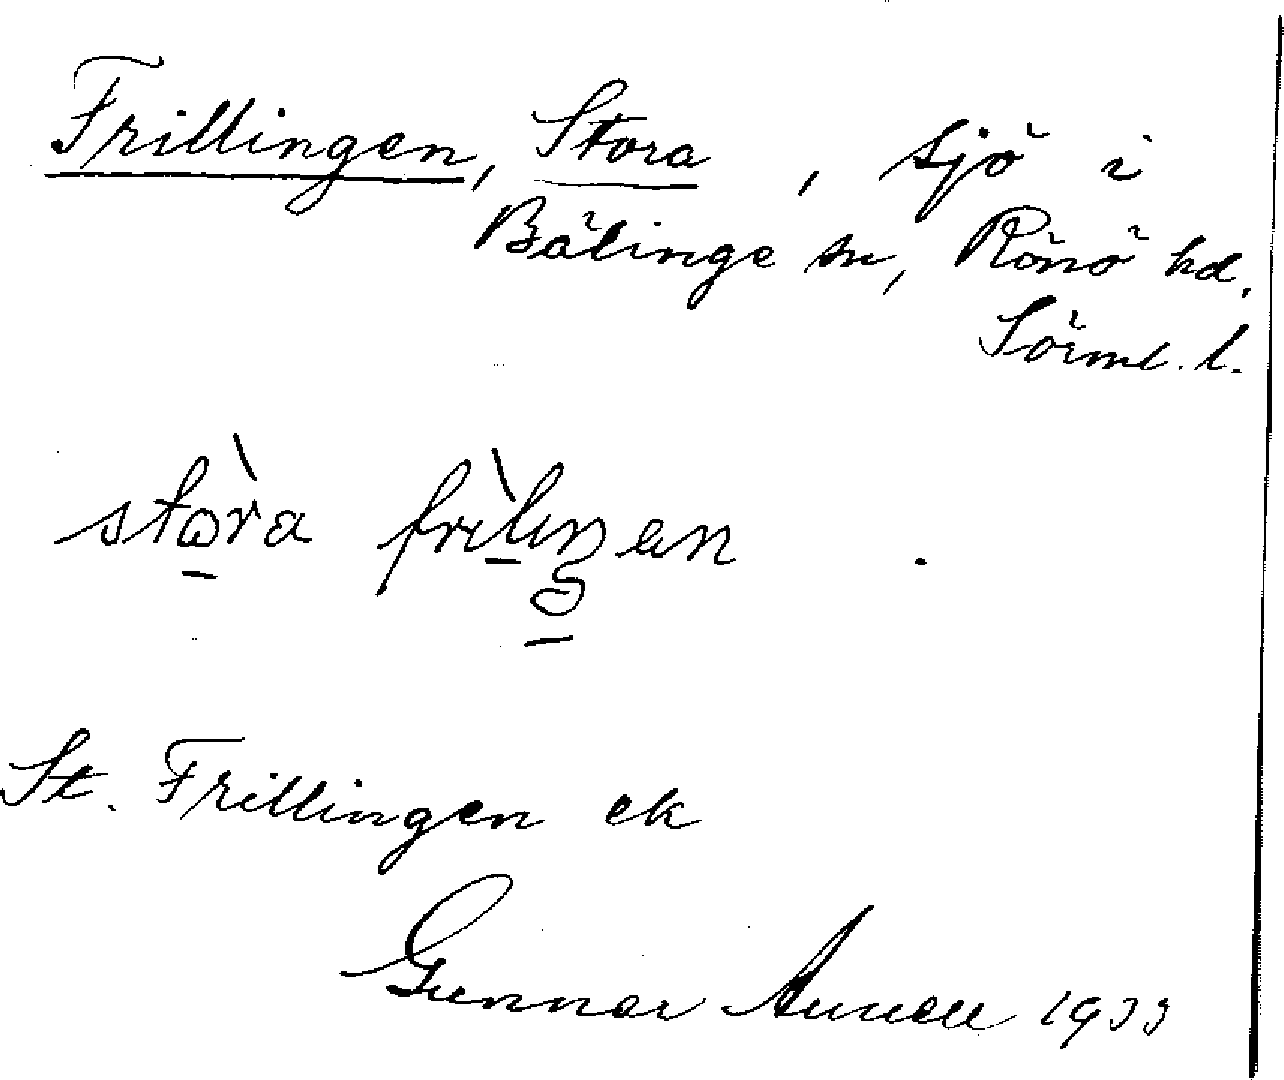 Frillingen, Stora, sjö i
Bälinge sn, Rönö hd.
Sörml. l.
stòra frìlŋen
St. Frillingen ek
Gunnar 1933